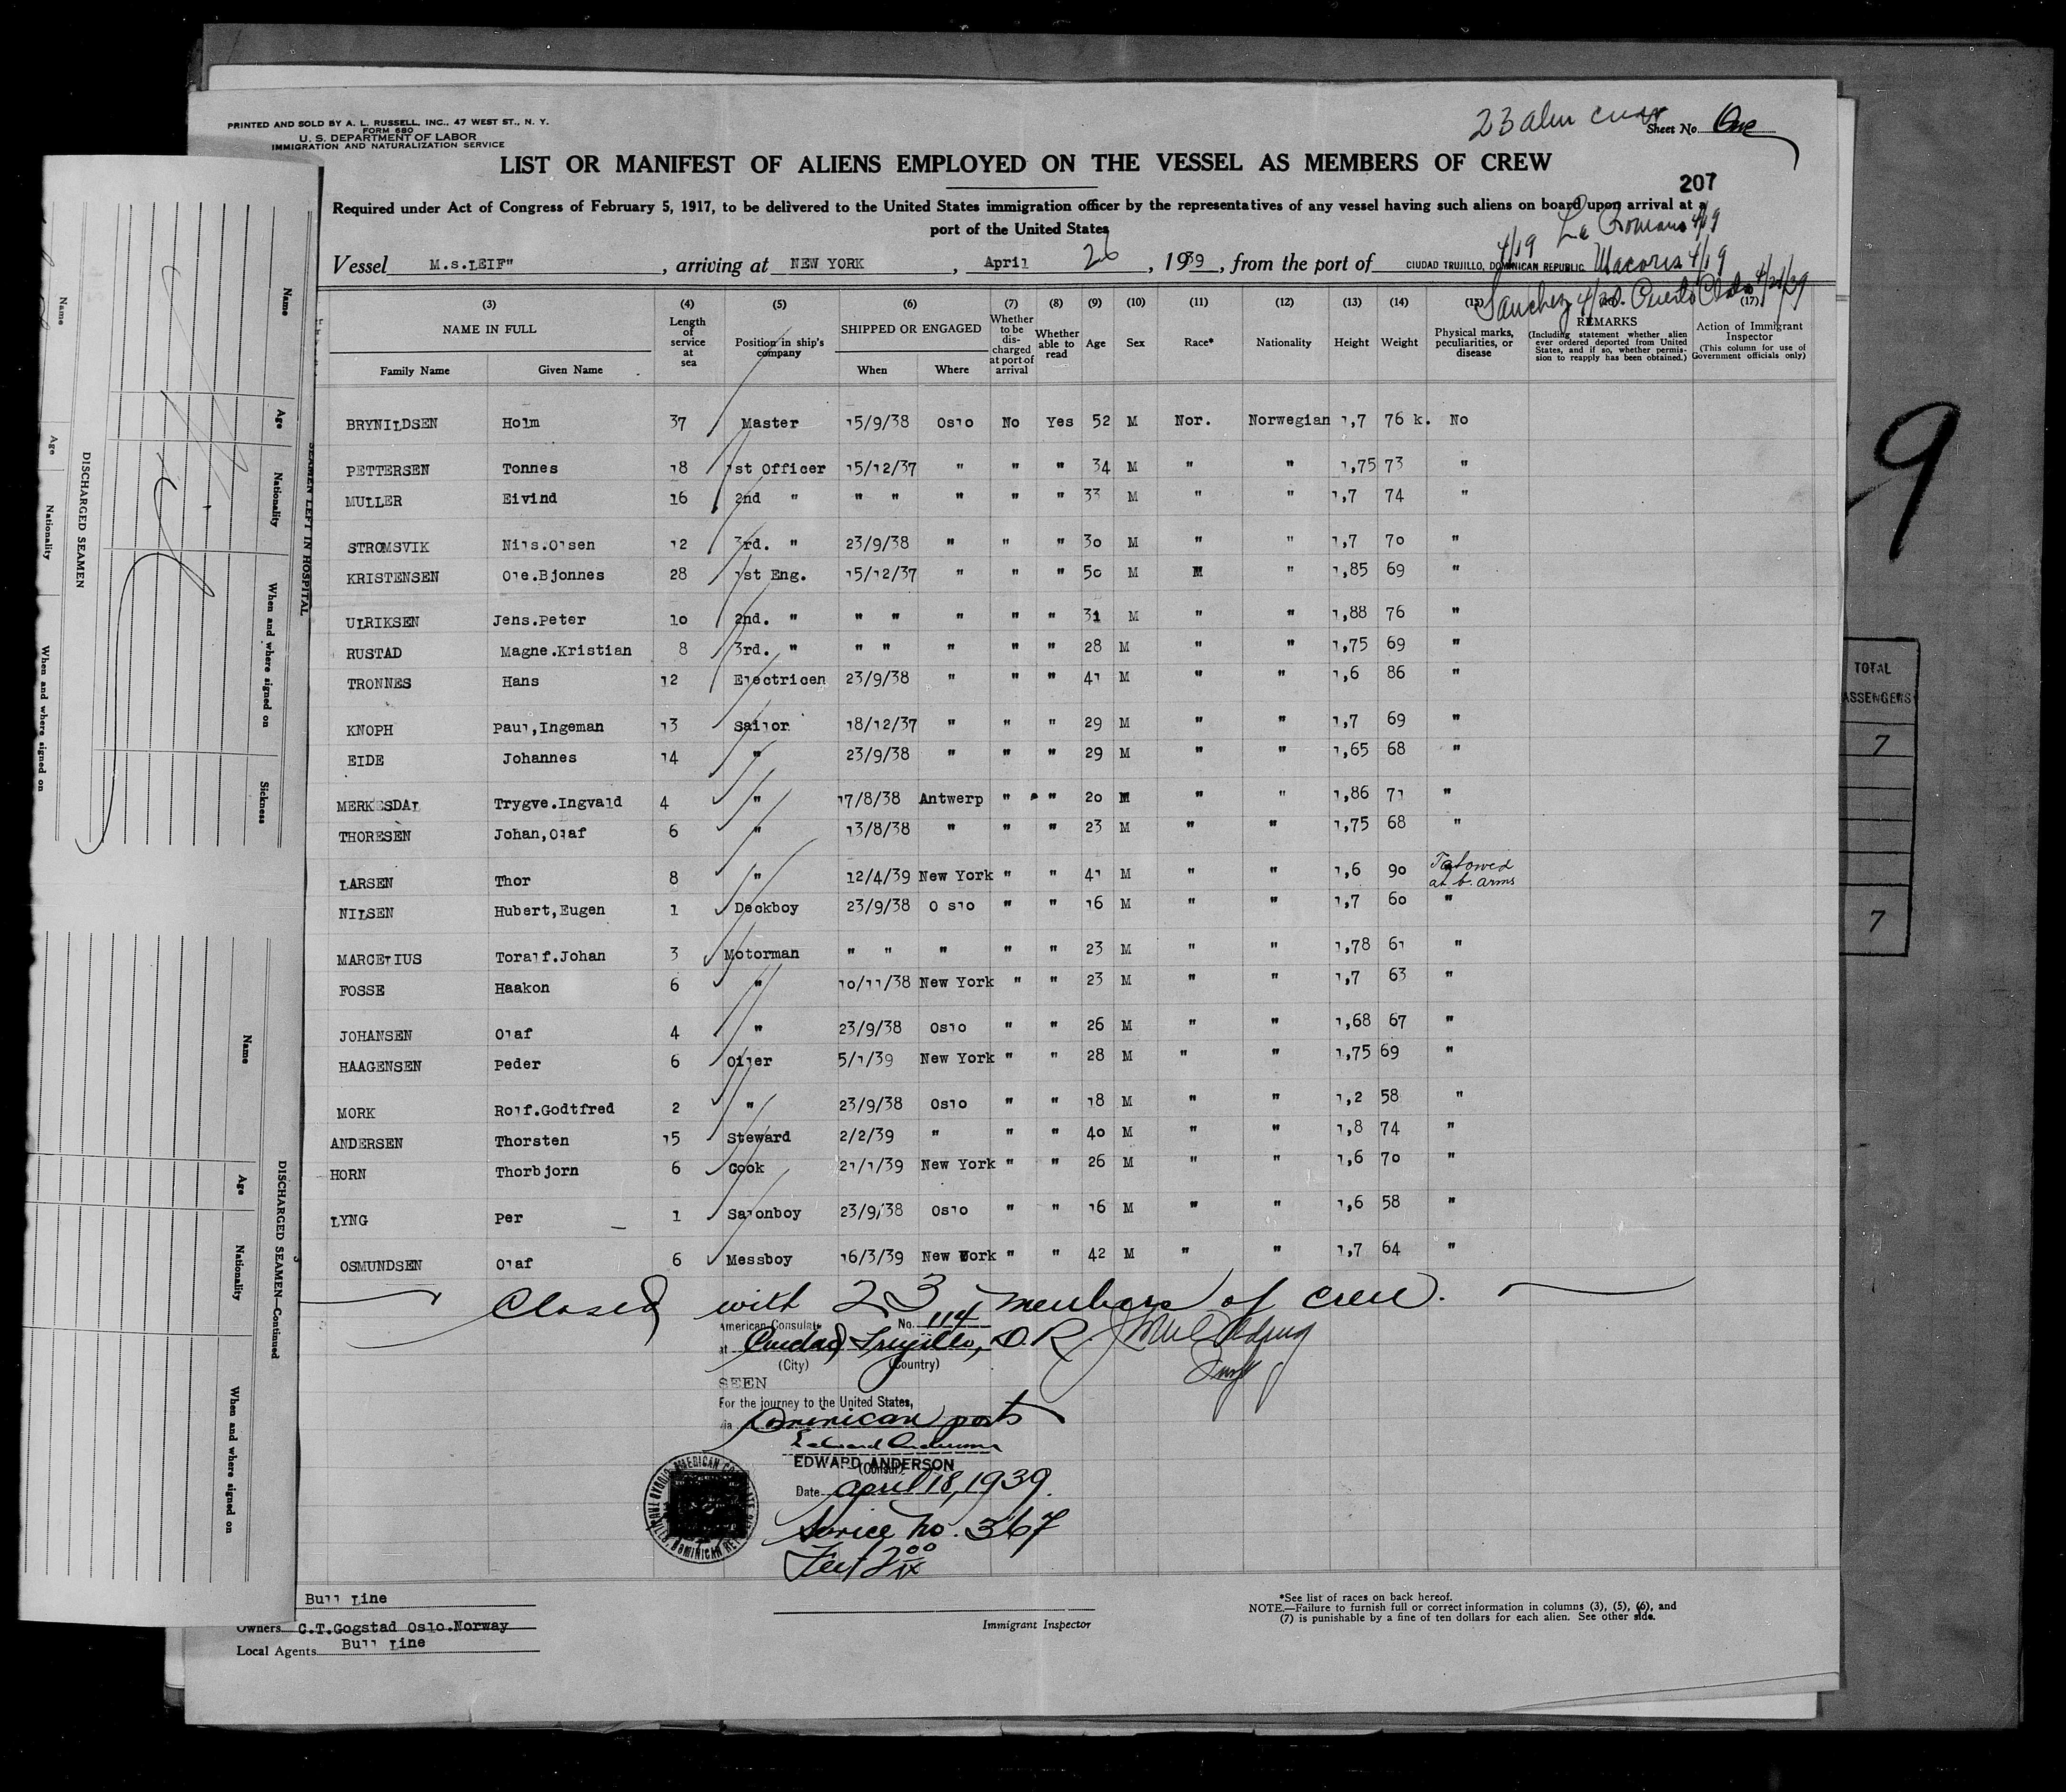 PRINTED AND SOLD BY A. L. RUSSELL, INC., 47 WEST ST., N. Y.
FORM 680
U. S. DEPARTMENT OF LABOR
IMMIGRATION AND NATURALIZATION SERVICE
23 alien crew
Sheet No. One
LIST OR MANIFEST OF ALIENS EMPLOYED ON THE VESSEL AS MEMBERS OF CREW
207
Required under Act of Congress of February 5, 1917, to be delivered to the United States immigration officer by the representatives of any vessel having such aliens on board upon arrival at a
port of the United States
4/19 La Romana 4/19
Vessel M.s.LEIF" , arriving at NEW YORK , April 26 , 1939 , from the port of CIUDAD TRUJILLO, DOMINICAN REPUBLIC Macoris 4/19
Sanchez 4/20. Puerto Plata 4/21/39
(3) (4) (5) (6) (7) (8) (9) (10) (11) (12) (13) (14) (15) (17)
NAME IN FULL Length of service at sea Position in ship's company SHIPPED OR ENGAGED Whether to be discharged at port of arrival Whether able to read Age Sex Race* Nationality Height Weight Physical marks, peculiarities, or disease REMARKS (Including statement whether alien ever ordered deported from United States, and if so, whether permission to reapply has been obtained.) Action of Immigrant Inspector (This column for use of Government officials only)
Family Name Given Name When Where
BRYNILDSEN Holm 37 Master 15/9/38 Oslo No Yes 52 M Nor. Norwegian 1,7 76 k. No
PETTERSEN Tonnes 18 1st Officer 15/12/37 " " " 34 M " " 1,75 73 "
MULLER Eivind 16 2nd " " " " " " 33 M " " 1,7 74 "
STROMSVIK Nils.Olsen 12 3rd. " 23/9/38 " " " 30 M " " 1,7 70 "
KRISTENSEN Ole.Bjonnes 28 1st Eng. 15/12/37 " " " 50 M " " 1,85 69 "
ULRIKSEN Jens.Peter 10 2nd. " " " " " " 31 M " " 1,88 76 "
RUSTAD Magne.Kristian 8 3rd. " " " " " " 28 M " " 1,75 69 "
TRONNES Hans 12 Electricen 23/9/38 " " " 41 M " " 1,6 86 "
KNOPH Paul,Ingeman 13 Sailor 18/12/37 " " " 29 M " " 1,7 69 "
EIDE Johannes 14 " 23/9/38 " " " 29 M " " 1,65 68 "
MERKESDAL Trygve.Ingvald 4 " 17/8/38 Antwerp " " 20 M " " 1,86 71 "
THORESEN Johan,Olaf 6 " 13/8/38 " " " 23 M " " 1,75 68 "
LARSEN Thor 8 " 12/4/39 New York " " 41 M " " 1,6 90 Tatowed at b. arms
NILSEN Hubert,Eugen 1 Deckboy 23/9/38 O slo " " 16 M " " 1,7 60 "
MARCELIUS Toralf.Johan 3 Motorman " " " " " 23 M " " 1,78 61 "
FOSSE Haakon 6 " 10/11/38 New York " " 23 M " " 1,7 63 "
JOHANSEN Olaf 4 " 23/9/38 Oslo " " 26 M " " 1,68 67 "
HAAGENSEN Peder 6 Oiler 5/1/39 New York " " 28 M " " 1,75 69 "
MORK Rolf.Godtfred 2 " 23/9/38 Oslo " " 18 M " " 1,2 58 "
ANDERSEN Thorsten 15 Steward 2/2/39 " " " 40 M " " 1,8 74 "
HORN Thorbjorn 6 Cook 21/1/39 New York " " 26 M " " 1,6 70 "
LYNG Per 1 Salonboy 23/9/38 Oslo " " 16 M " " 1,6 58 "
OSMUNDSEN Olaf 6 Messboy 16/3/39 New York " " 42 M " " 1,7 64 "
Closed with 23 members of crew.
American Consulate No. 114
at Ciudad Trujillo, D.R.
(City) (Country)
SEEN
For the journey to the United States,
via Dominican ports
Edward Anderson
EDWARD ANDERSON
(Consul)
Date April 18, 1939.
Service No. 367
Fee $2.00
Bull Line
Owners C.T.Gogstad Oslo.Norway
Local Agents Bull Line
Immigrant Inspector
*See list of races on back hereof.
NOTE.—Failure to furnish full or correct information in columns (3), (5), (6), and
(7) is punishable by a fine of ten dollars for each alien. See other side.
SEAMEN LEFT IN HOSPITAL
Name Age Nationality When and where signed on Sickness
DISCHARGED SEAMEN
Name Age Nationality When and where signed on
DISCHARGED SEAMEN—Continued
Name Age Nationality When and where signed on
9
TOTAL
PASSENGERS
7
7